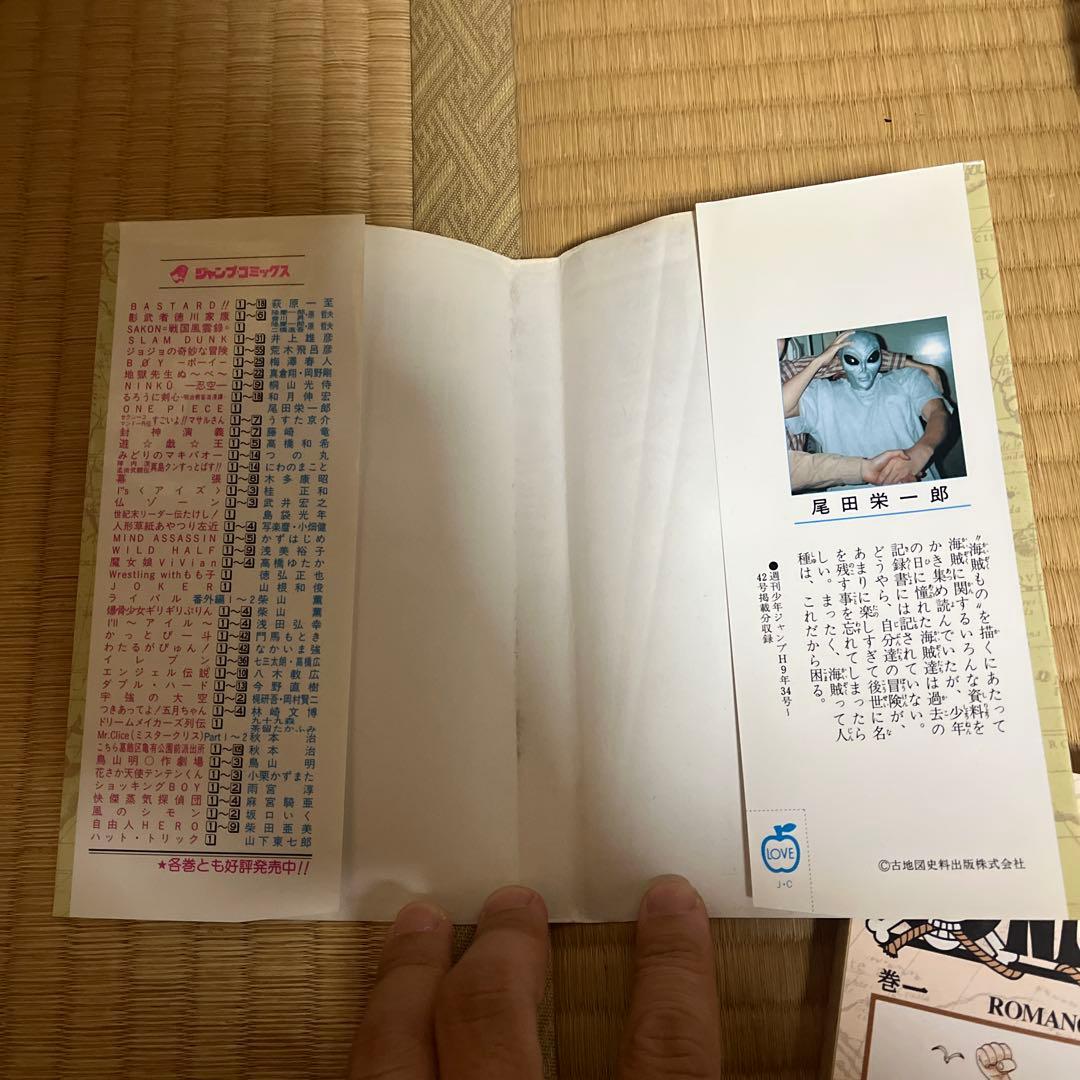 ジャンプコミックス
BASTARD!! 1〜18 萩原一至
影武者徳川家康 1〜6 隆慶一郎・原哲夫
SAKON=戦国風雲録= 1 隆慶一郎・原哲夫
SLAM DUNK 1〜31 井上雄彦
ジョジョの奇妙な冒険 荒木飛呂彦
BØY ―ボーイ― 梅澤春人
地獄先生ぬ〜べ〜 真倉翔・岡野剛
NINKŪ ―忍空― 1〜9 桐山光侍
るろうに剣心・明治剣客浪漫譚・ 1〜18 和月伸宏
ONE PIECE 1 尾田栄一郎
セクシーコマンドー外伝すごいよ!!マサルさん 1〜7 うすた京介
封神演義 1〜7 藤崎竜
遊☆戯☆王 1〜5 高橋和希
みどりのマキバオー 1〜14 つの丸
陣内流柔術武闘伝真島クンすっとばす!! 1〜14 にわのまこと
幕張 1〜8 木多康昭
I"s〈アイズ〉 1〜3 桂正和
仏ゾーン 1〜3 武井宏之
世紀末リーダー伝たけし! 1 島袋光年
人形草紙あやつり左近 1〜4 写楽麿・小畑健
MIND ASSASSIN 1〜5 かずはじめ
WILD HALF 1〜9 浅美裕子
魔女娘ViVian 1〜4 高橋ゆたか
Wrestling withもも子 1 徳弘正也
JOKER 1 山根和俊
ライバル 番外編1〜2 柴山薫
爆骨少女ギリギリぷりん 1〜4 柴山薫
I'll 〜アイル〜 1〜4 浅田弘幸
かっとび一斗 門馬もとき
わたるがぴゅん! なかいま強
イレブン 七三太朗・高橋広
エンジェル伝説 八木教広
ダブル・ハード 1〜13 今野直樹
宇強の大空 1〜2 梶研吾・岡村賢二
つきあってよ!五月ちゃん 1〜4 林崎文博
ドリームメイカーズ列伝 1 九十九森 茶留たかふみ
Mr.Clice(ミスタークリス)Part1〜2 秋本治
こちら葛飾区亀有公園前派出所 秋本治
鳥山明○作劇場 1〜3 鳥山明
花さか天使テンテンくん 1〜3 小栗かずまた
ショッキングBOY 1〜2 雨宮淳
快傑蒸気探偵団 1〜4 麻宮騎亜
風のシモン 1〜2 坂口いく
自由人HERO 1〜9 柴田亜美
ハット・トリック 1 山下東七郎
★各巻とも好評発売中!!
尾田栄一郎
"海賊もの"を描くにあたって
海賊に関するいろんな資料を
かき集め読んでいたが、少年
の日に憧れた海賊達は過去の
記録書には記されていない。
どうやら、自分達の冒険が、
あまりに楽しすぎて後世に名
を残す事を忘れてしまったら
しい。まったく、海賊って人
種は、これだから困る。
●週刊少年ジャンプH9年34号〜
42号掲載分収録
LOVE
J・C
©古地図史料出版株式会社
巻一
ROMANC